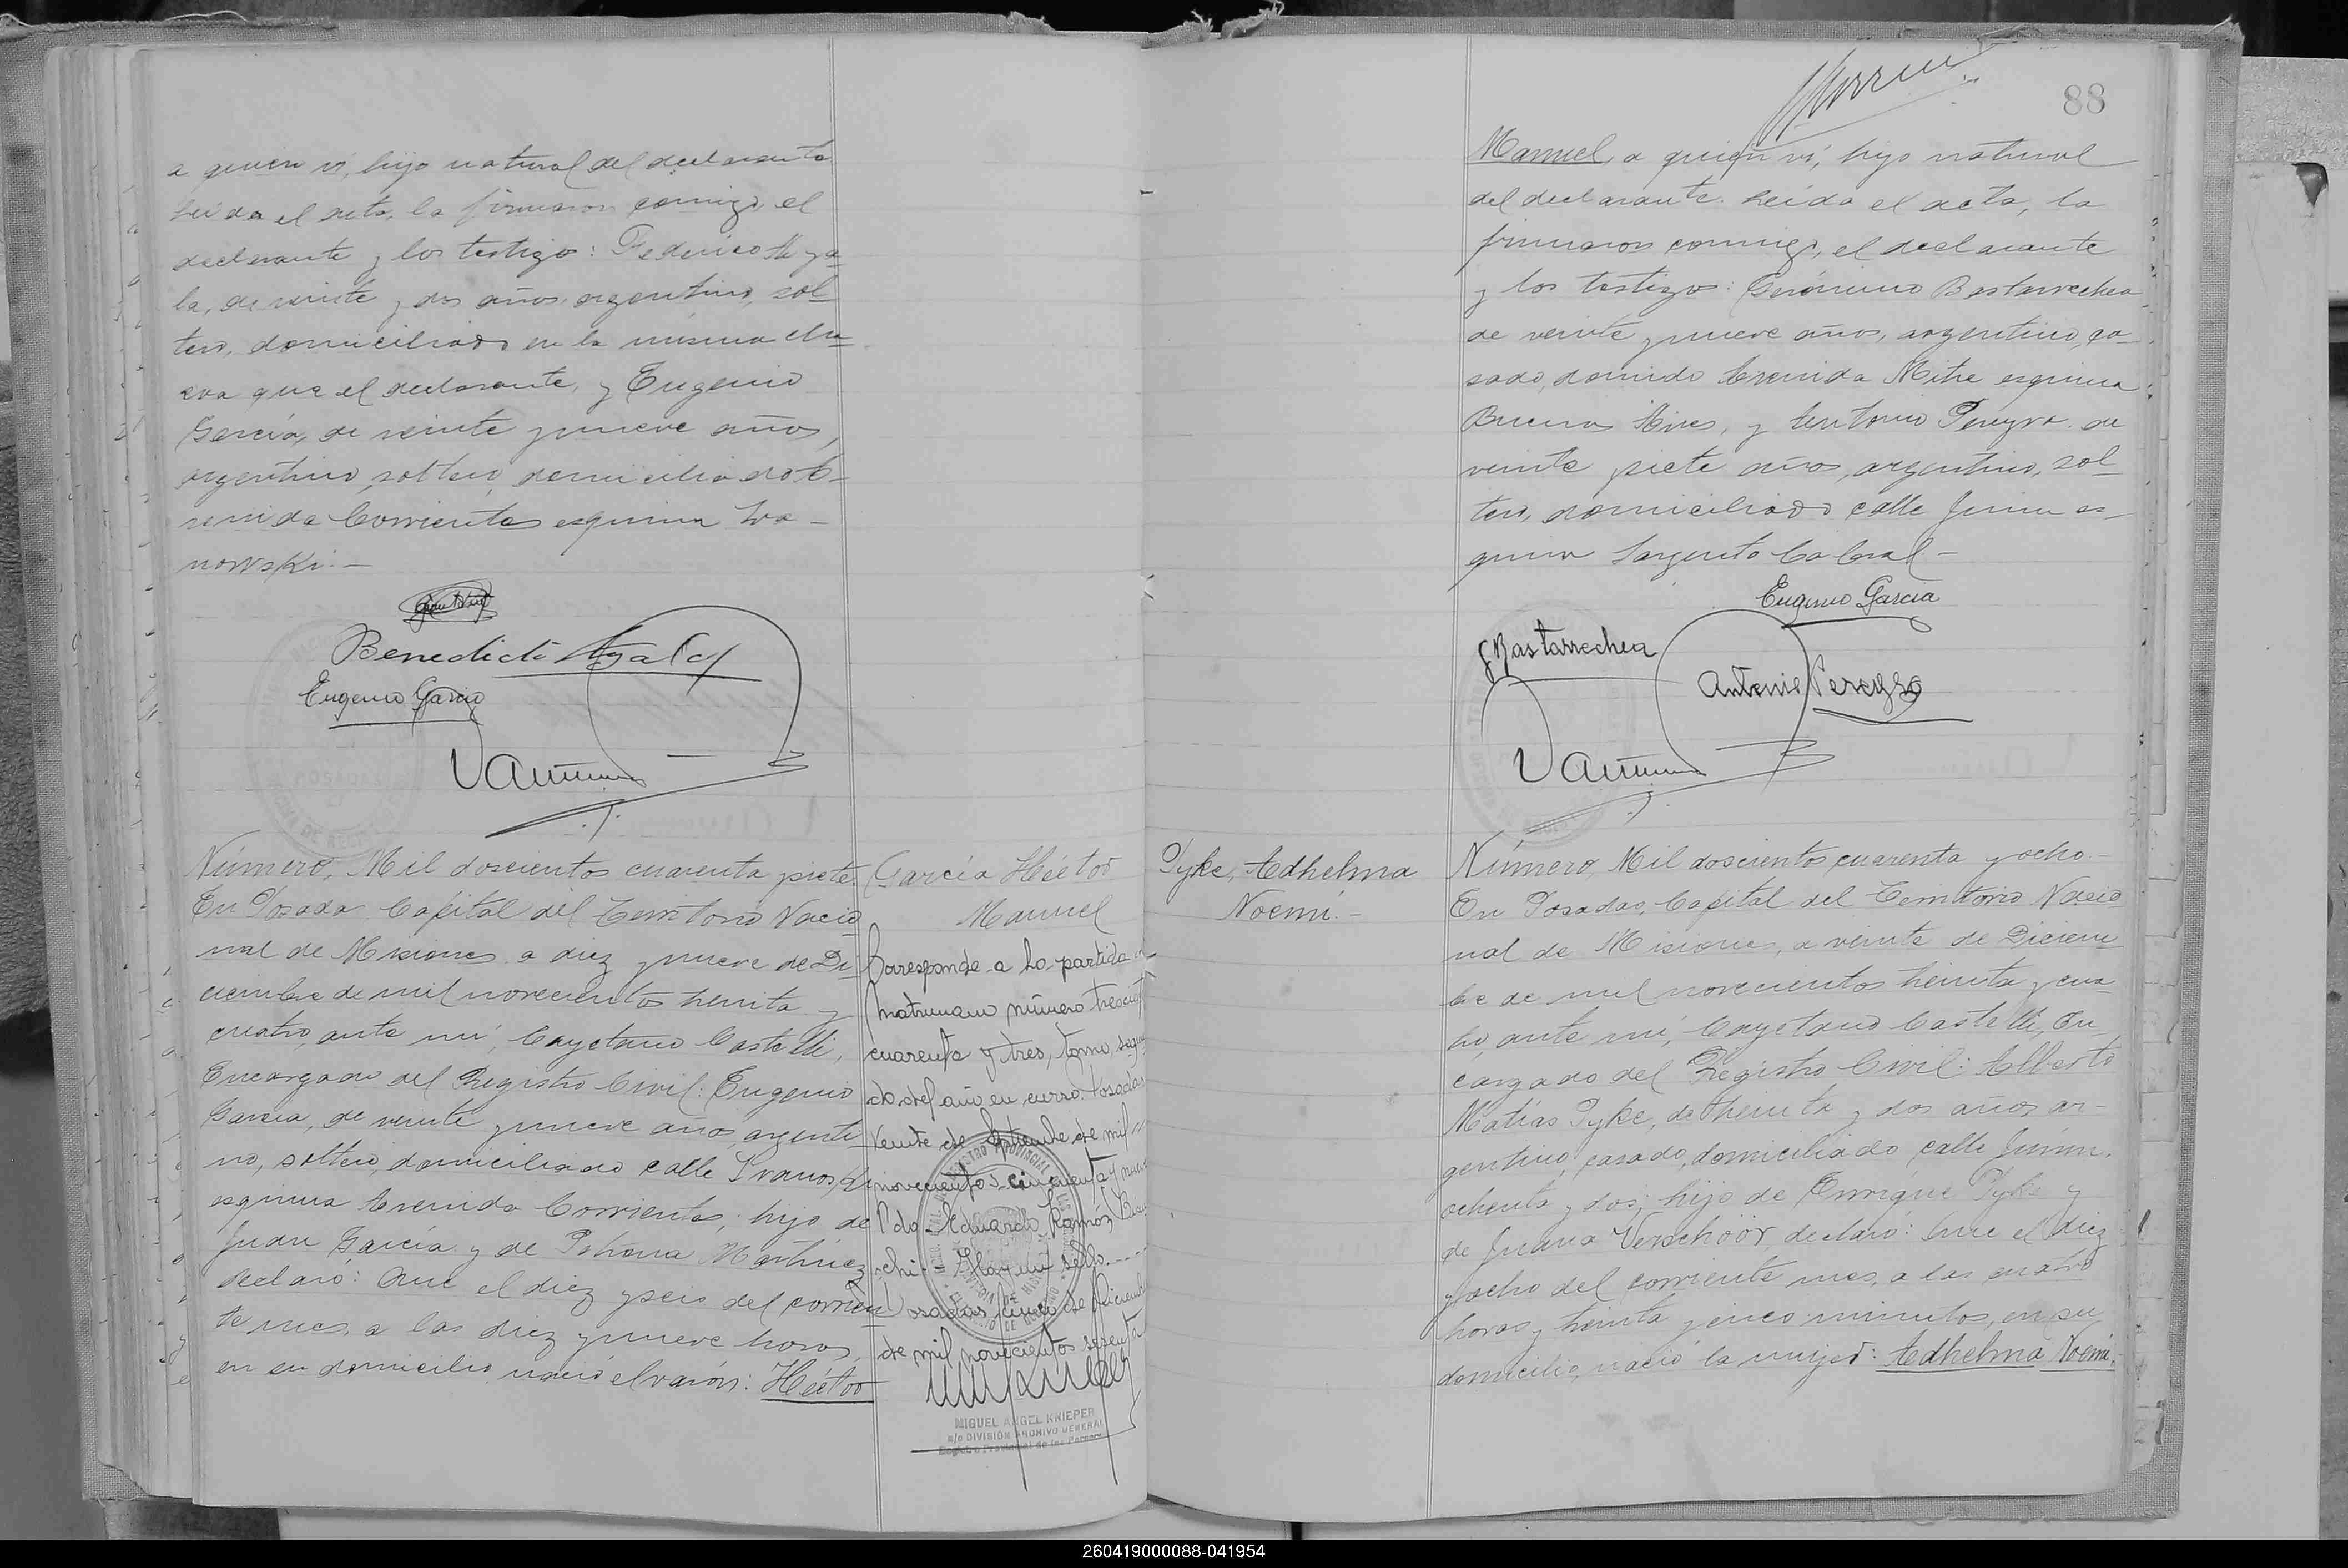 a quien ví, hijo natural del declarante
Leida el acta, la firmaron conmigo, el
declarante y los testigos: Federico Aya=
la, de veinte y dos años, argentino, sol
tero, domiciliado en la misma cha=
cra que el declarante, y Eugenio
García, de veinte y nueve años,
argentino, soltero, domiciliado A-
venida Corrientes esquina Iva-
nowski.-
Benedicto Ayala
Eugenio Garcia
Número, Mil doscientos cuarenta y siete.
En Posadas Capital del Territorio Nacio
nal de Misiones a diez y nueve de Di
ciembre de mil novecientos treinta y
cuatro, ante mi, Cayetano Castelli,
Encargado del Registro Civil: Eugenio
García, de veinte y nueve años, argenti
no, soltero, domiciliado calle Ivanoski
esquina Avenida Corrientes, hijo de
Juan García y de Petrona Martínez
declaró: Que el diez y seis del corrien
te mes, a las diez y nueve horas,
en su domicilio, nació el varón: Héctor
García Héctor
Manuel
Corresponde a la partida
matrimonio número
cuarenta y tres, tomo
do del año en curso. Posadas
veinte de de mil
novecientos cincuenta y
Eduardo Ramón
Hay un sello.----
Posadas, de Diciembre
de mil novecientos sesenta
MIGUEL ANGEL KNIEPER
a/c DIVISIÓN ARCHIVO GENERAL
Registro Provincial de las Personas
88
Manuel, a quien ví, hijo natural
del declarante. Leída el acta, la
firmaron conmigo, el declarante
y los testigos: Gerónimo Bastarrechea
de veinte y nueve años, argentino, ca-
sado, domido Avenida Mitre esquina
Buenos Aires, y Antonio Pereyra de
veinte y siete años, argentino, sol
tero, domiciliado calle Junin es-
quina Sargento Cabral-
Eugenio García
G Bastarrechea
Antonio Pereyra
Pyke, Adhelma
Noemí.-
Número, Mil doscientos cuarenta y ocho.-
En Posadas, Capital del Territorio Nacio
nal de Misiones, a veinte de Diciem
bre de mil novecientos treinta y cua
tro, ante mi, Cayetano Castelli, En
cargado del Registro Civil: Alberto
Matías Pyke, de treinta y dos años, ar-
gentino, casado, domiciliado calle Junin.
ochenta y dos, hijo de Enrique Pyke y
de Juana Verschöör, declaró: Que el diez
y ocho del corriente mes, a las cuatro
horas y treinta y cinco minutos, en su
domicilio, nació la mujer: Adhelma Noemí,
260419000088-041954